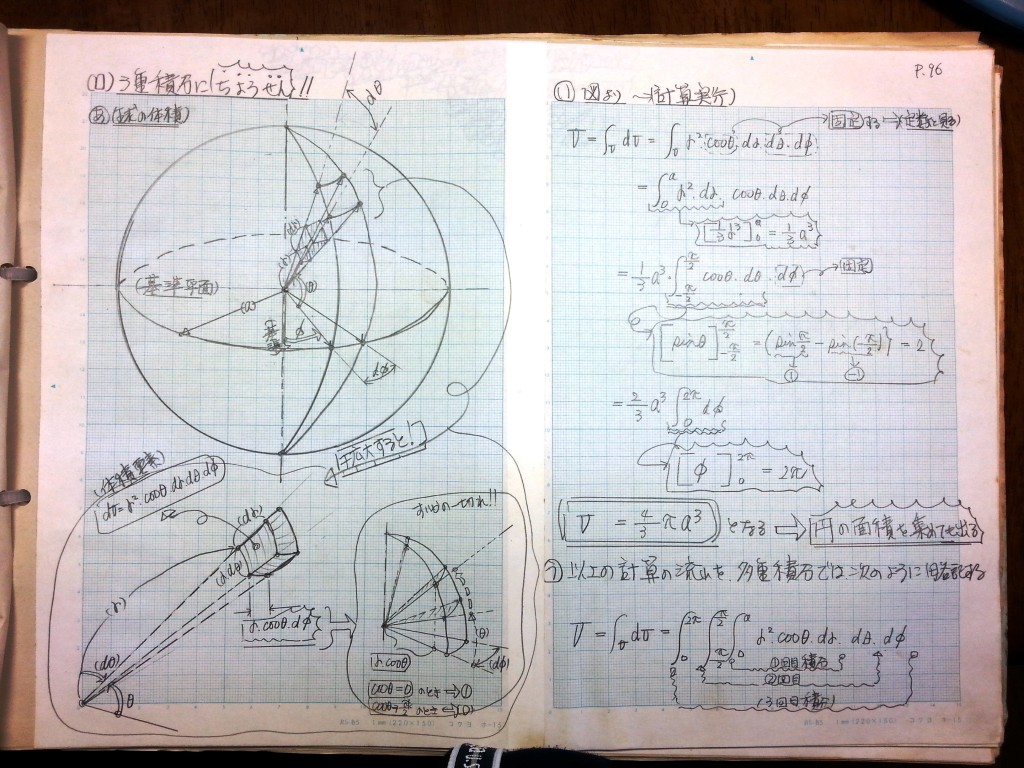 (11) 3重積分に{ちょうせん}!!
(球の体積)
dθ
(dr)
(r)
θ
(基準平面)
(a)
基準
φ
dφ
拡大すると!
体積要素
dv=r²·cosθ·dr·dθ·dφ
(dr)
(r·dθ)
(r)
(dθ)
θ
r·cosθ·dφ
すいかの一切れ!!
(θ)
(dφ)
r·cosθ
cosθ=0 のとき→①
cosθ=π/2 のとき→(0)
1mm(220×150) コクヨ ホ-15
P.96
① 図より ~(計算実行)
V = ∫v dv = ∫v r²·cosθ·dr·dθ·dφ →固定する→(定数と見る)
= ∫₀ᵃ r²·dr·cosθ·dθ·dφ
[1/3 r³]₀ᵃ = 1/3 a³
= 1/3 a³·∫_{-π/2}^{π/2} cosθ·dθ·dφ →固定
[sinθ]_{-π/2}^{π/2} = {sin π/2 - sin(-π/2)} = 2
① (-1)
= 2/3 a³ ∫₀^{2π} dφ
[φ]₀^{2π} = 2π
V = 4/3 πa³ となる ⇒ 円の面積を集めても出る
② 以上の計算の流れを、多重積分では次のように略記する
V = ∫v dv = ∫₀^{2π} ∫_{π/2}^{π/2} ∫₀ᵃ r² cosθ·dr·dθ·dφ
①回目積分
②回目
(3回目積分)
1mm(220×150) コクヨ ホ-15